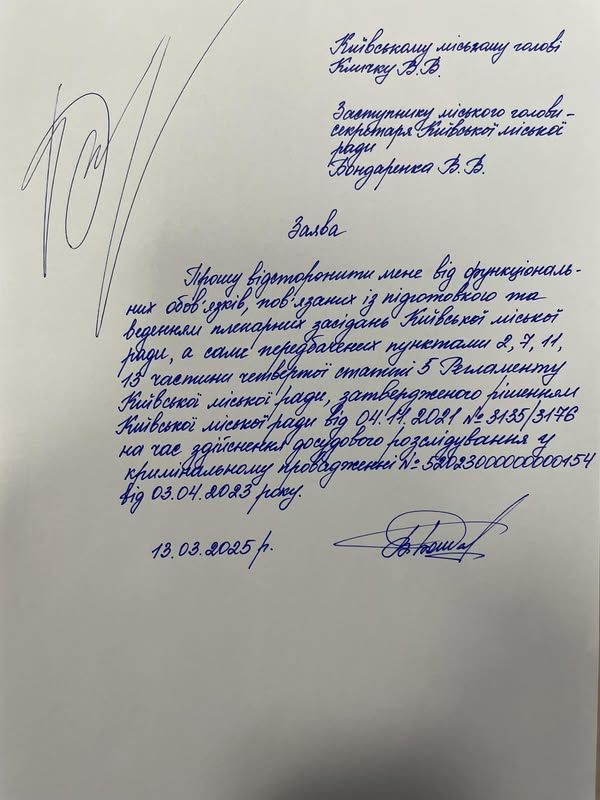 Київському міському голові
Кличку В.В.
Заступнику міського голови-
секретаря Київської міської
ради
Бондаренка В.В.
Заява
Прошу відсторонити мене від функціональ-
них обов'язків, пов'язаних із підготовкою та
веденням пленарних засідань Київської міської
ради, а саме передбачених пунктами 2, 7, 11,
13 частини четвертої статті 5 Регламенту
Київської міської ради, затвердженого рішенням
Київської міської ради від 04.11.2021 № 3135/3176
на час здійснення досудового розслідування у
кримінальному провадженні № 52023000000000154
від 03.04.2023 року.
13.03.2025 р.